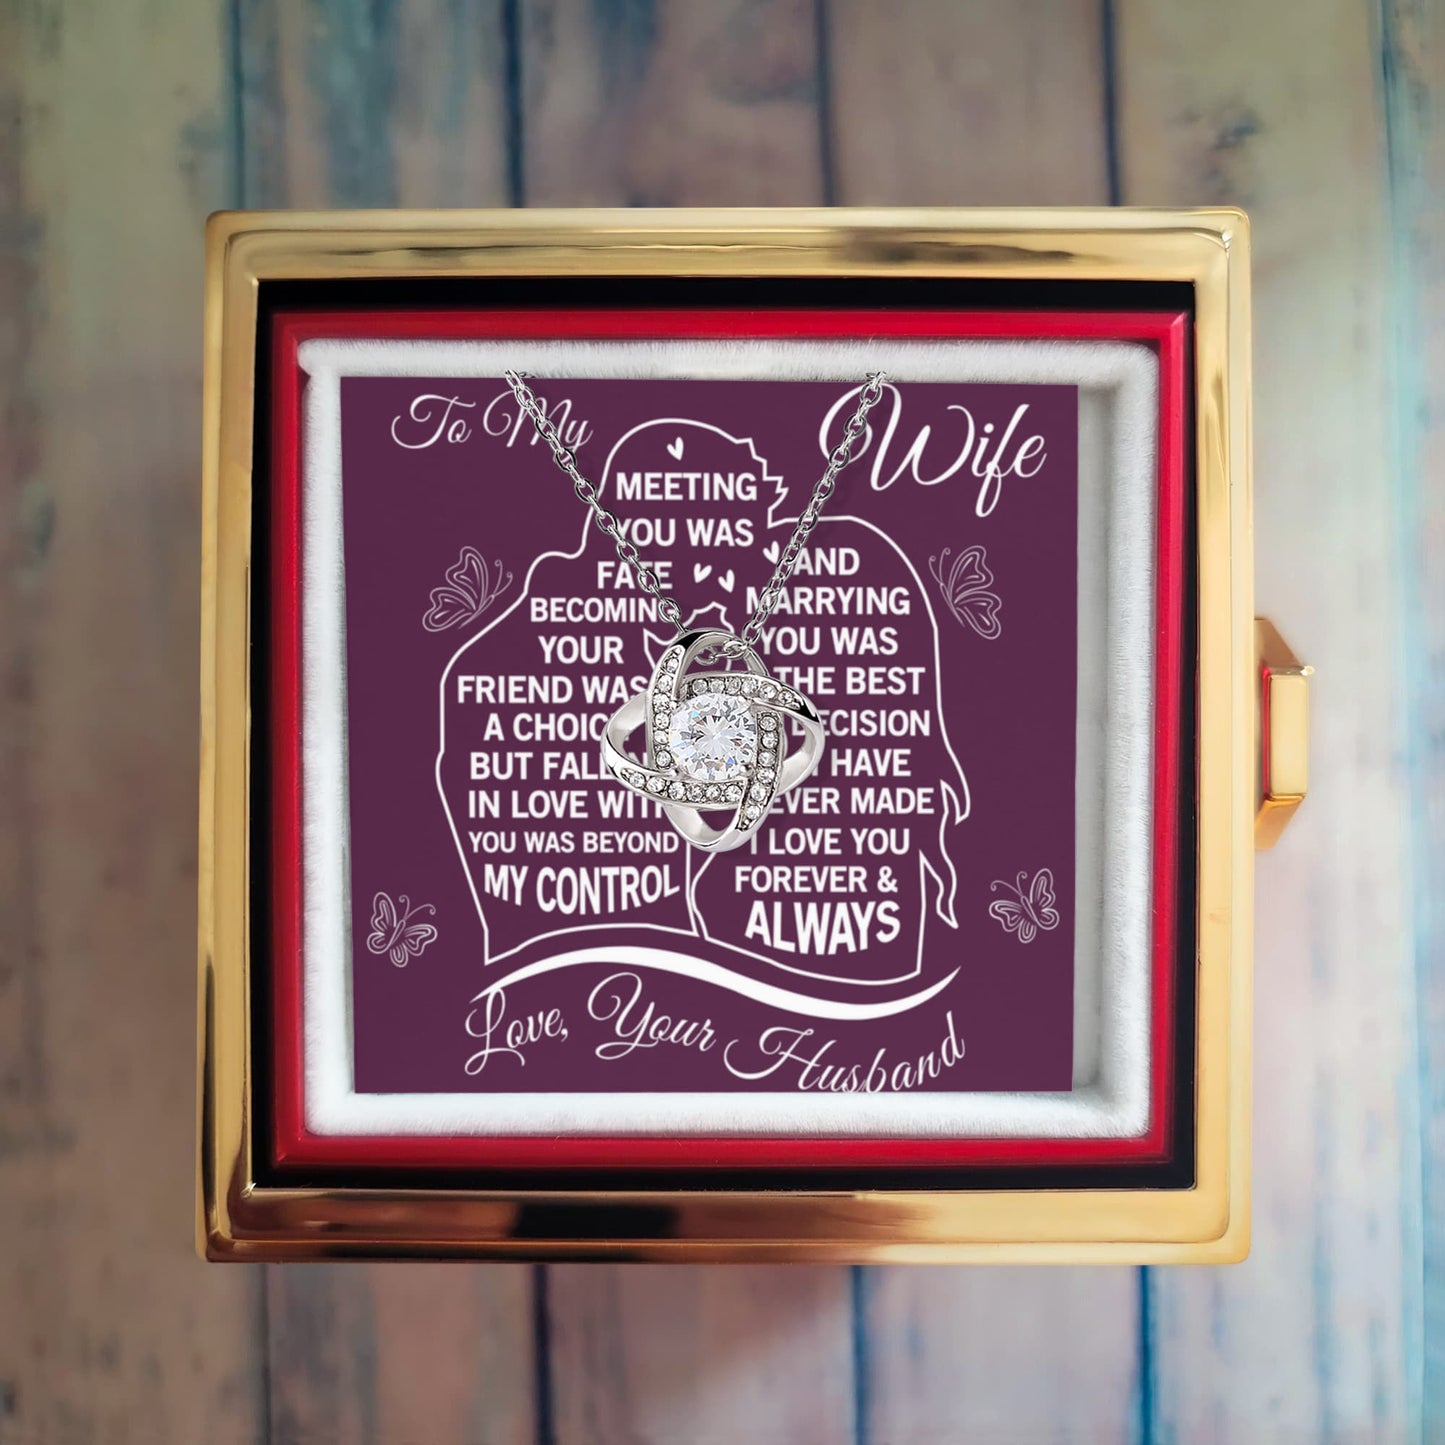 To My Wife
MEETING
YOU WAS
FATE
BECOMING
YOUR
FRIEND WAS
A CHOICE
BUT FALLING
IN LOVE WITH
YOU WAS BEYOND
MY CONTROL
AND
MARRYING
YOU WAS
THE BEST
DECISION
I HAVE
EVER MADE
I LOVE YOU
FOREVER &
ALWAYS
Love, Your Husband